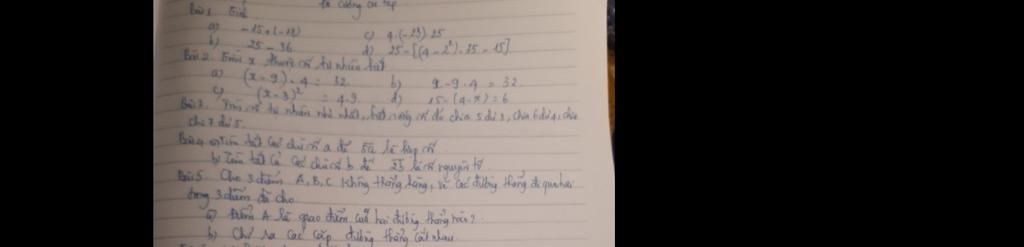 Đề cương ôn tập
Bài 1. Tính
a) -15 + (-18) c) 4.(-23).25
b) 25 - 36 d) 25 - [(4 - 2²). 15 - 15]
Bài 2. Tìm x thuộc số tự nhiên biết
a) (x - 9). 4 = 32 b) x - 9. 4 = 32
c) (x - 3)² = 4.9 d) 15 - (4 - x) = 6
Bài 3. Tìm số tự nhiên nhỏ nhất, biết rằng số đó chia 5 dư 3, chia 6 dư 4, chia
cho 7 dư 5.
Bài 4. a) Tìm tất cả chữ số a để là hợp số
b) Tìm tất cả các chữ số b để là số nguyên tố
Bài 5. Cho 3 điểm A, B, C không thẳng hàng, vẽ các đường thẳng đi qua hai
trong 3 điểm đã cho.
a) Điểm A là giao điểm của hai đường thẳng nào?
b) Chỉ ra các cặp đường thẳng cắt nhau.